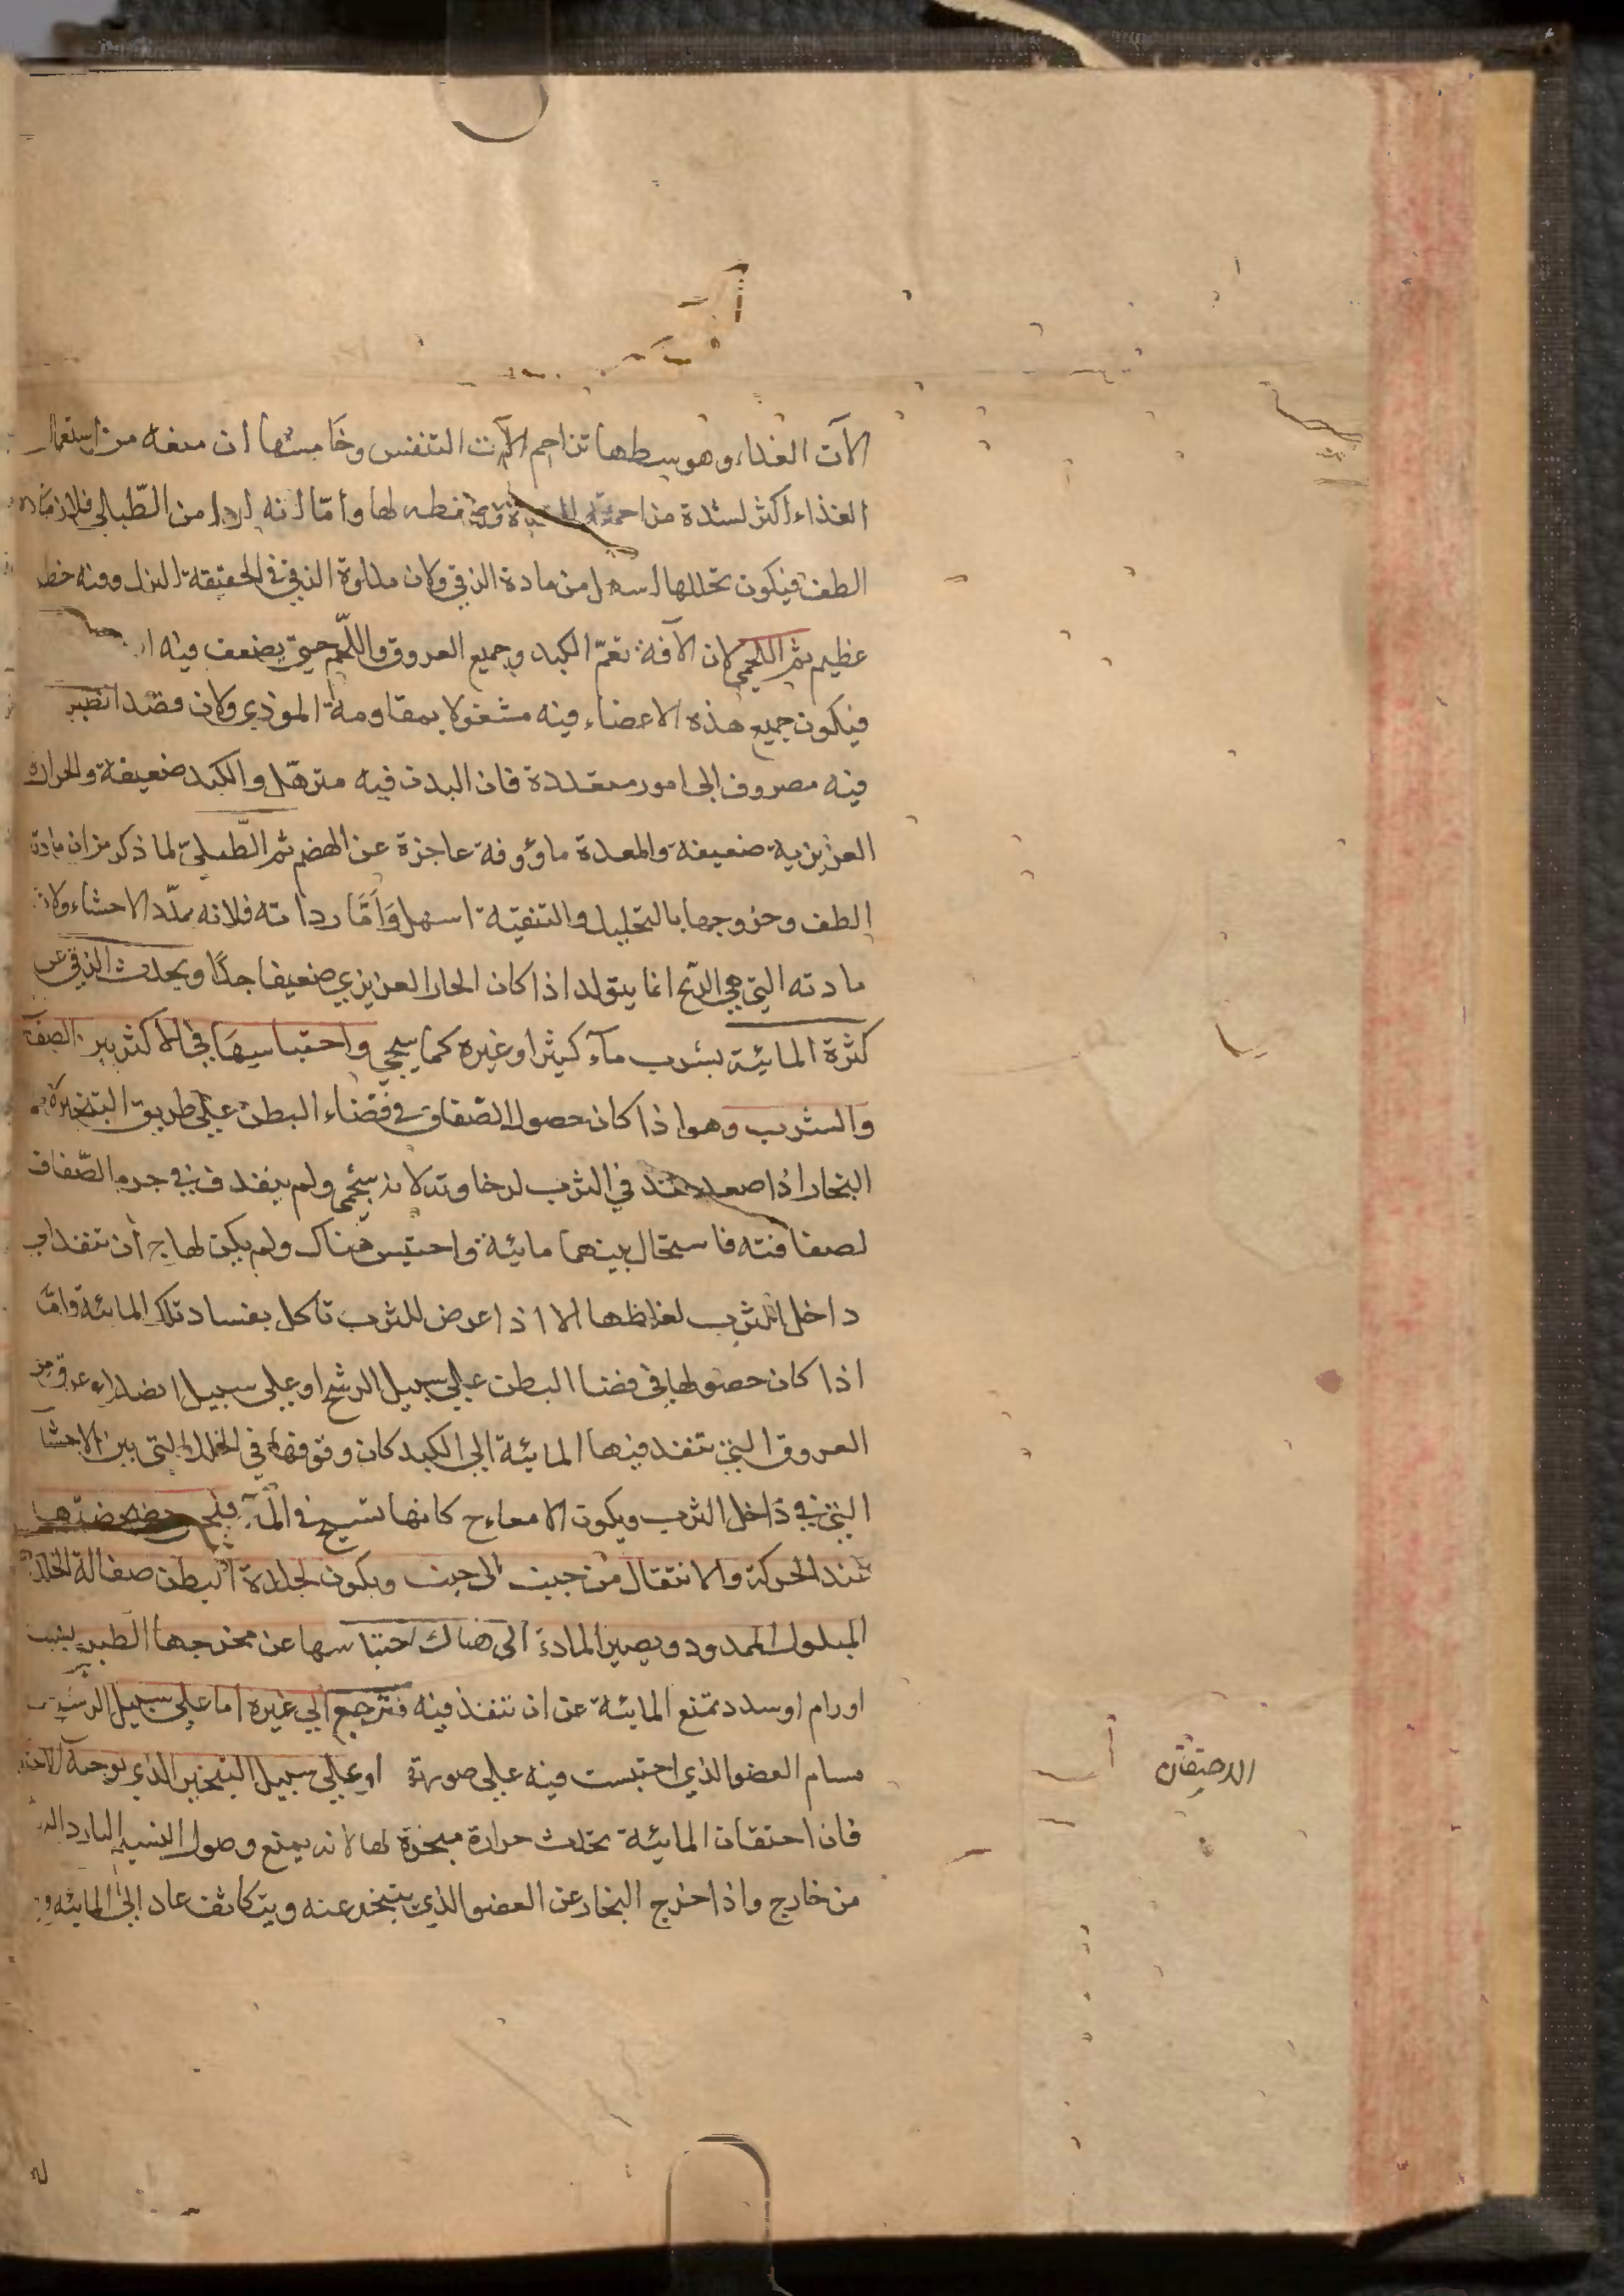 الآت الغذاء وهو بتوسطها تزاحم الآت التنفس وخامسها ان منعه من استعمال
الغذاء اكثر لشدة مزاحمته للمعدة لها وأما انه اردا من الطبلي فلان مادته
الطف فيكون تحللها اسهل من مادة الزقي ولان مداوة الزقي في الحقيقة البزل وفيه خطر
عظيم ثم اللحمي لان الآفة تعمّ الكبد وجميع العروق واللحم حتى يضعف فيه
فيكون جميع هذه الاعضاء فيه مشغولا بمقاومة الموذي ولان قصد الطبيب
فيه مصروف الى امور متعددة فان البدن فيه مترهّل والكبد ضعيفة والحرارة
الغريزية ضعيفة والمعدة ماؤوفة عاجزة عن الهضم ثم الطبليّ لما ذكر من ان مادته
الطف وخروجها بالتحليل والتنقية اسهل وَأمَّا رداءته فلانه يمدّد الاحشاء ولان
مادته التي هي الريح انما يتولد اذا كان الحار الغريزي ضعيفا جدًا ويحدث الزقي عن
كثرة المائية بشرب مآء كثير او غيره كما سيجي واحتباسها في الاكثر بين الصفاق
والثرب وهو اذا كان حصول الصّفاق في فضاء البطن على طريق التبخير لان
البخار اذا صعد نفذ في الثرب لرخاوته لانه شحمي ولم ينفذ في جرم الصّفاق
لصفاقته فاستحال بينهما مائية واحتبس هناك ولم يكن لها ح أن تنفذ في
داخل الثرب لغلظها الا اذا عرض للثرب تاكل بفساد تلك المائية وامّا
اذا كان حصولها في فضا البطن على سبيل الرشح او على سبيل انصداع عرق من
العروق التي تنفذ فيها المائية الى الكبد كان وقوفها في الخلل التي بين الاحشآ
التي في داخل الثرب ويكون الامعاء ح كانها تسبح في المآء خضخضتها
عند الحركة والانتقال من جنب الى جنب ويكون لجلدة البطن صقالة الجلد
المبلول الممدود ويصير المادة الى هناك احتباسها عن مخرجها الطبيعي بسبب
اورام او سدد تمنع المائية عن ان تنفذ فيه فترجع الى غيره اما على سبيل الرشح من
مسام العضو الذي احتبست فيه على صورته او على سبيل التبخير الذي يوجبه الاحتقان
فان احتقان المائية تحدث حرارة مبخرة لها لانه يمنع وصول النسيم البارد اليه
من خارج واذا اخرج البخار عن العضو الذي يتبخر عنه ويتكاثف عاد الى المائية
الاحتقان